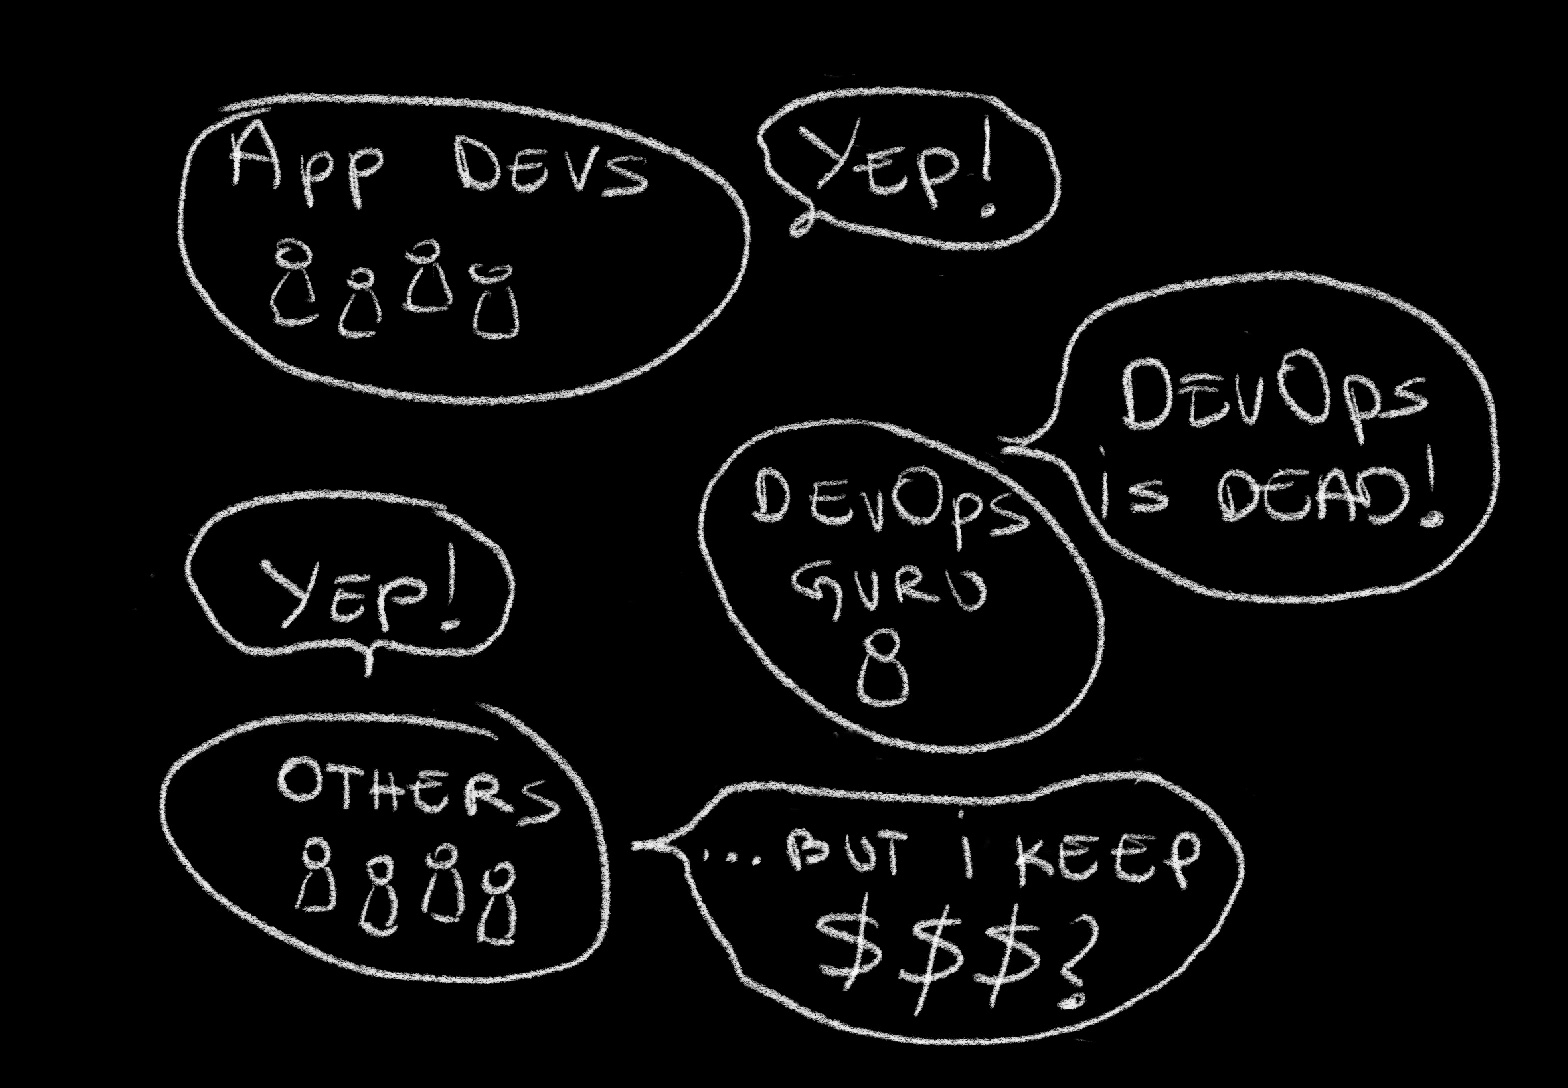 APP DEVS
YEP!
DEVOPS
IS DEAD!
DEVOPS
GURU
YEP!
OTHERS
... BUT I KEEP
$$$?